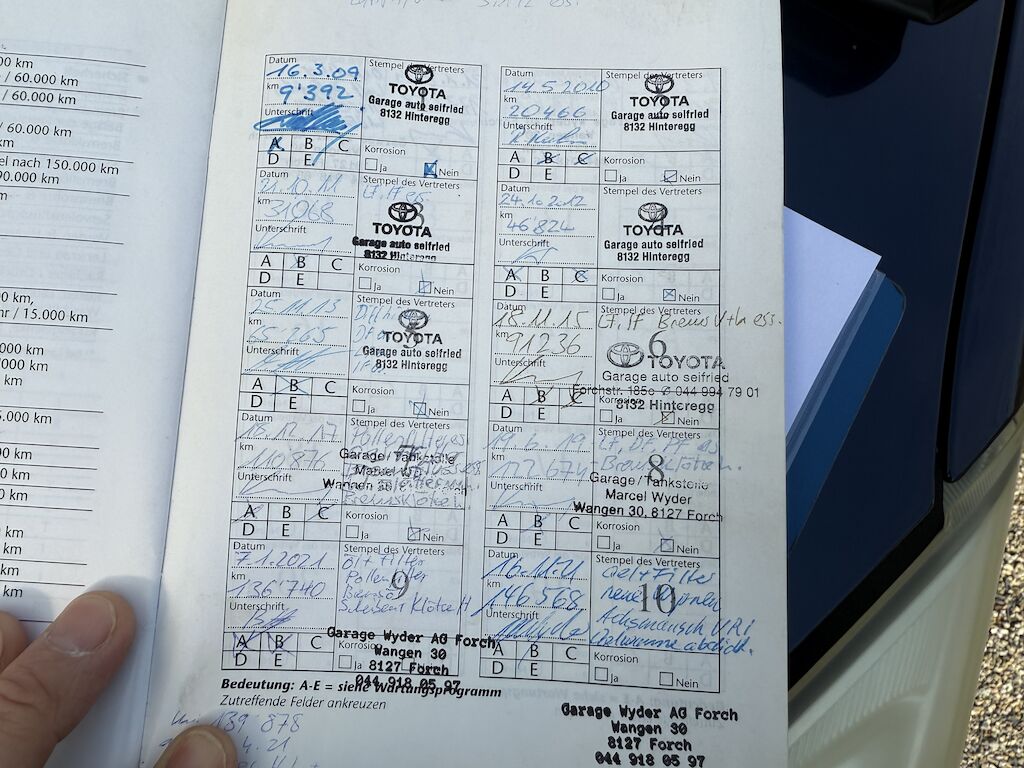 00 km
/ 60.000 km
/ 60.000 km
/ 60.000 km
el nach 150.000 km
90.000 km
0 km,
hr / 15.000 km
000 km
000 km
km
5.000 km
000 km
0 km
0 km
km
km
km
km
Datum 16.3.09
km 9'392
Unterschrift
A B C
D E
Stempel des Vertreters
TOYOTA
Garage auto seifried
8132 Hinteregg
Korrosion
Ja Nein
Datum 14.5.2010
km 20466
Unterschrift
A B C
D E
Stempel des Vertreters
TOYOTA
Garage auto seifried
8132 Hinteregg
Korrosion
Ja Nein
Datum 31.10.11
km 31068
Unterschrift
A B C
D E
Stempel des Vertreters
3
TOYOTA
Garage auto seifried
8132 Hinteregg
Korrosion
Ja Nein
Datum 24.10.2012
km 46'824
Unterschrift
A B C
D E
Stempel des Vertreters
4
TOYOTA
Garage auto seifried
8132 Hinteregg
Korrosion
Ja Nein
Datum 25.11.13
km 65'265
Unterschrift
A B C
D E
Stempel des Vertreters
5
TOYOTA
Garage auto seifried
8132 Hinteregg
Korrosion
Ja Nein
Datum 18.11.15
km 91236
Unterschrift
A B C
D E
Stempel des Vertreters
6
TOYOTA
Garage auto seifried
Forchstr. 185c 044 994 79 01
8132 Hinteregg
Korrosion
Ja Nein
Datum 18.12.17
km 110'876
Unterschrift
A B C
D E
Stempel des Vertreters
7
Garage/Tankstelle
Marcel Wyder
Wangen 30
Bremsklötze
Korrosion
Ja Nein
Datum 19.6.19
km 122'674
Unterschrift
A B C
D E
Stempel des Vertreters
8
Garage/Tankstelle
Marcel Wyder
Wangen 30, 8127 Forch
Korrosion
Ja Nein
Datum 7.1.2021
km 136'740
Unterschrift
A B C
D E
Stempel des Vertreters
9
Öl + Filter
Pollenfilter
Korrosion
Ja Nein
Garage Wyder AG Forch
Wangen 30
8127 Forch
044 918 05 97
Datum 16.11.21
km 146'568
Unterschrift
A B C
D E
Stempel des Vertreters
10
Oel + Filter
neue
Korrosion
Ja Nein
Bedeutung: A-E = siehe Wartungsprogramm
Zutreffende Felder ankreuzen
139'878
4.21
Garage Wyder AG Forch
Wangen 30
8127 Forch
044 918 05 97